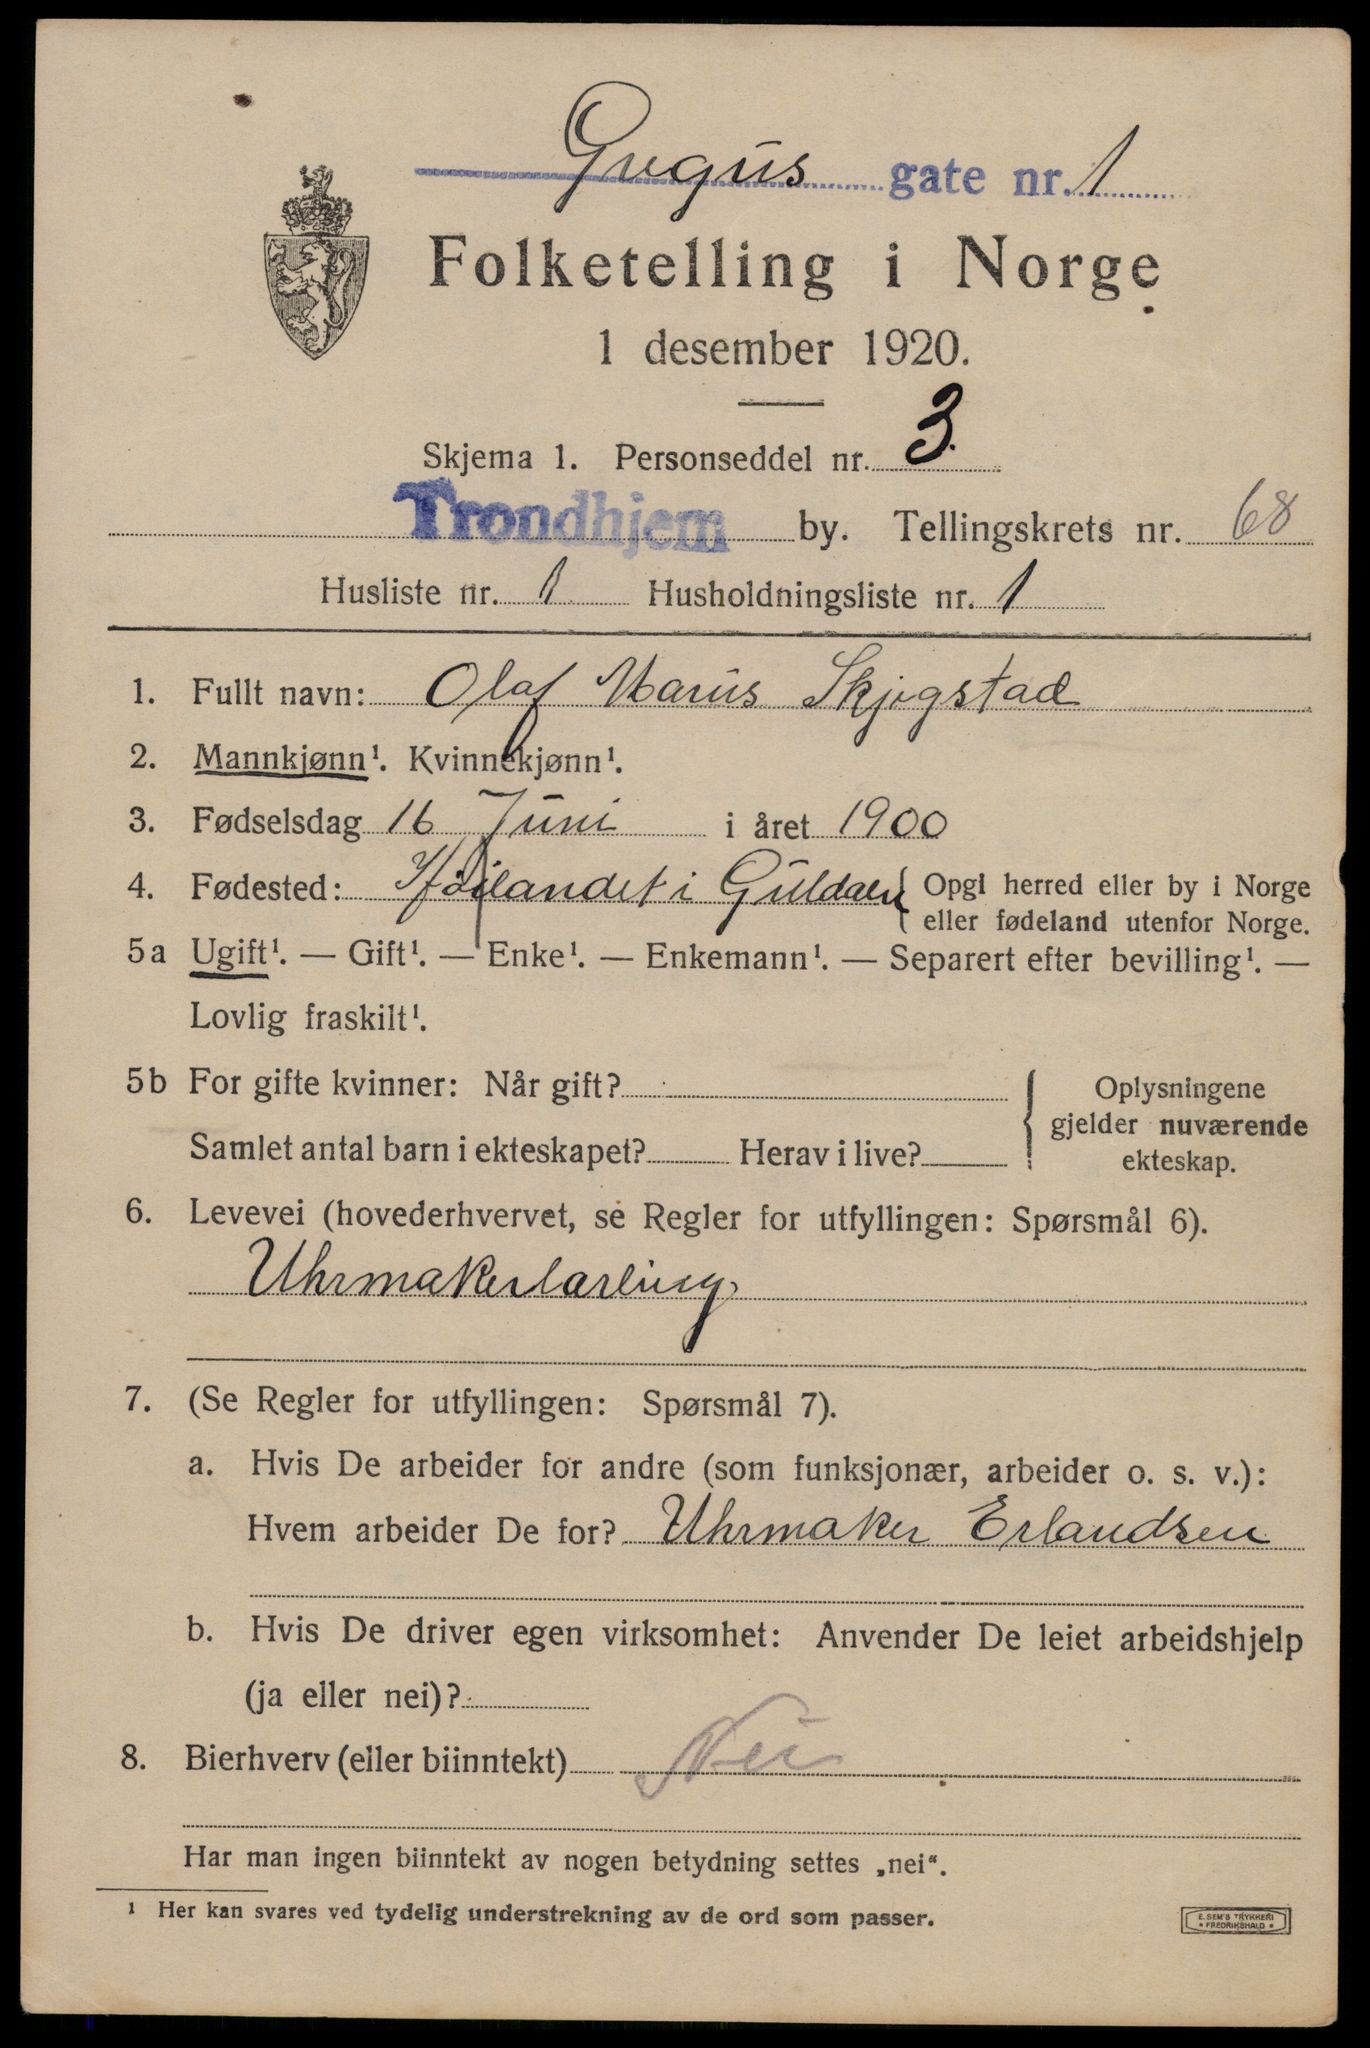 Gregus gate nr. 1
Folketelling i Norge
1 desember 1920.
Skjema 1. Personseddel nr. 3.
Trondhjem by. Tellingskrets nr. 68
Husliste nr. 1 Husholdningsliste nr. 1
1. Fullt navn: Olaf Marius Skjøgstad
2. Mannkjønn¹. Kvinnekjønn¹.
3. Fødselsdag 16 Juni i året 1900
4. Fødested: Høilandet i Guldalen { Opgi herred eller by i Norge
eller fødeland utenfor Norge.
5a Ugift¹. — Gift¹. — Enke¹. — Enkemann¹. — Separert efter bevilling¹. —
Lovlig fraskilt¹.
5b For gifte kvinner: Når gift?
Samlet antal barn i ekteskapet? Herav i live?
{ Oplysningene
gjelder nuværende
ekteskap.
6. Levevei (hovederhvervet, se Regler for utfyllingen: Spørsmål 6).
Uhrmakerlærling
7. (Se Regler for utfyllingen: Spørsmål 7).
a. Hvis De arbeider for andre (som funksjonær, arbeider o. s. v.):
Hvem arbeider De for? Uhrmaker Erlandsen
b. Hvis De driver egen virksomhet: Anvender De leiet arbeidshjelp
(ja eller nei)?
8. Bierhverv (eller biinntekt) Nei
Har man ingen biinntekt av nogen betydning settes „nei“.
¹ Her kan svares ved tydelig understrekning av de ord som passer.
E. SEM'S TRYKKERI
* FREDRIKSHALD *